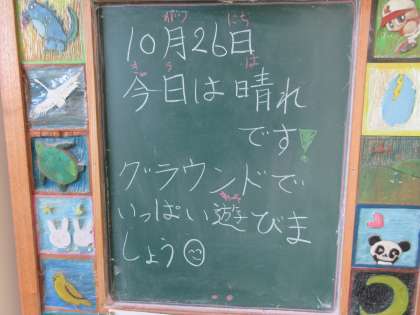 がつ にち
10月26日
きょう は
今日は晴れ
です!
グラウンドで
あそ
いっぱい遊びま
しょう